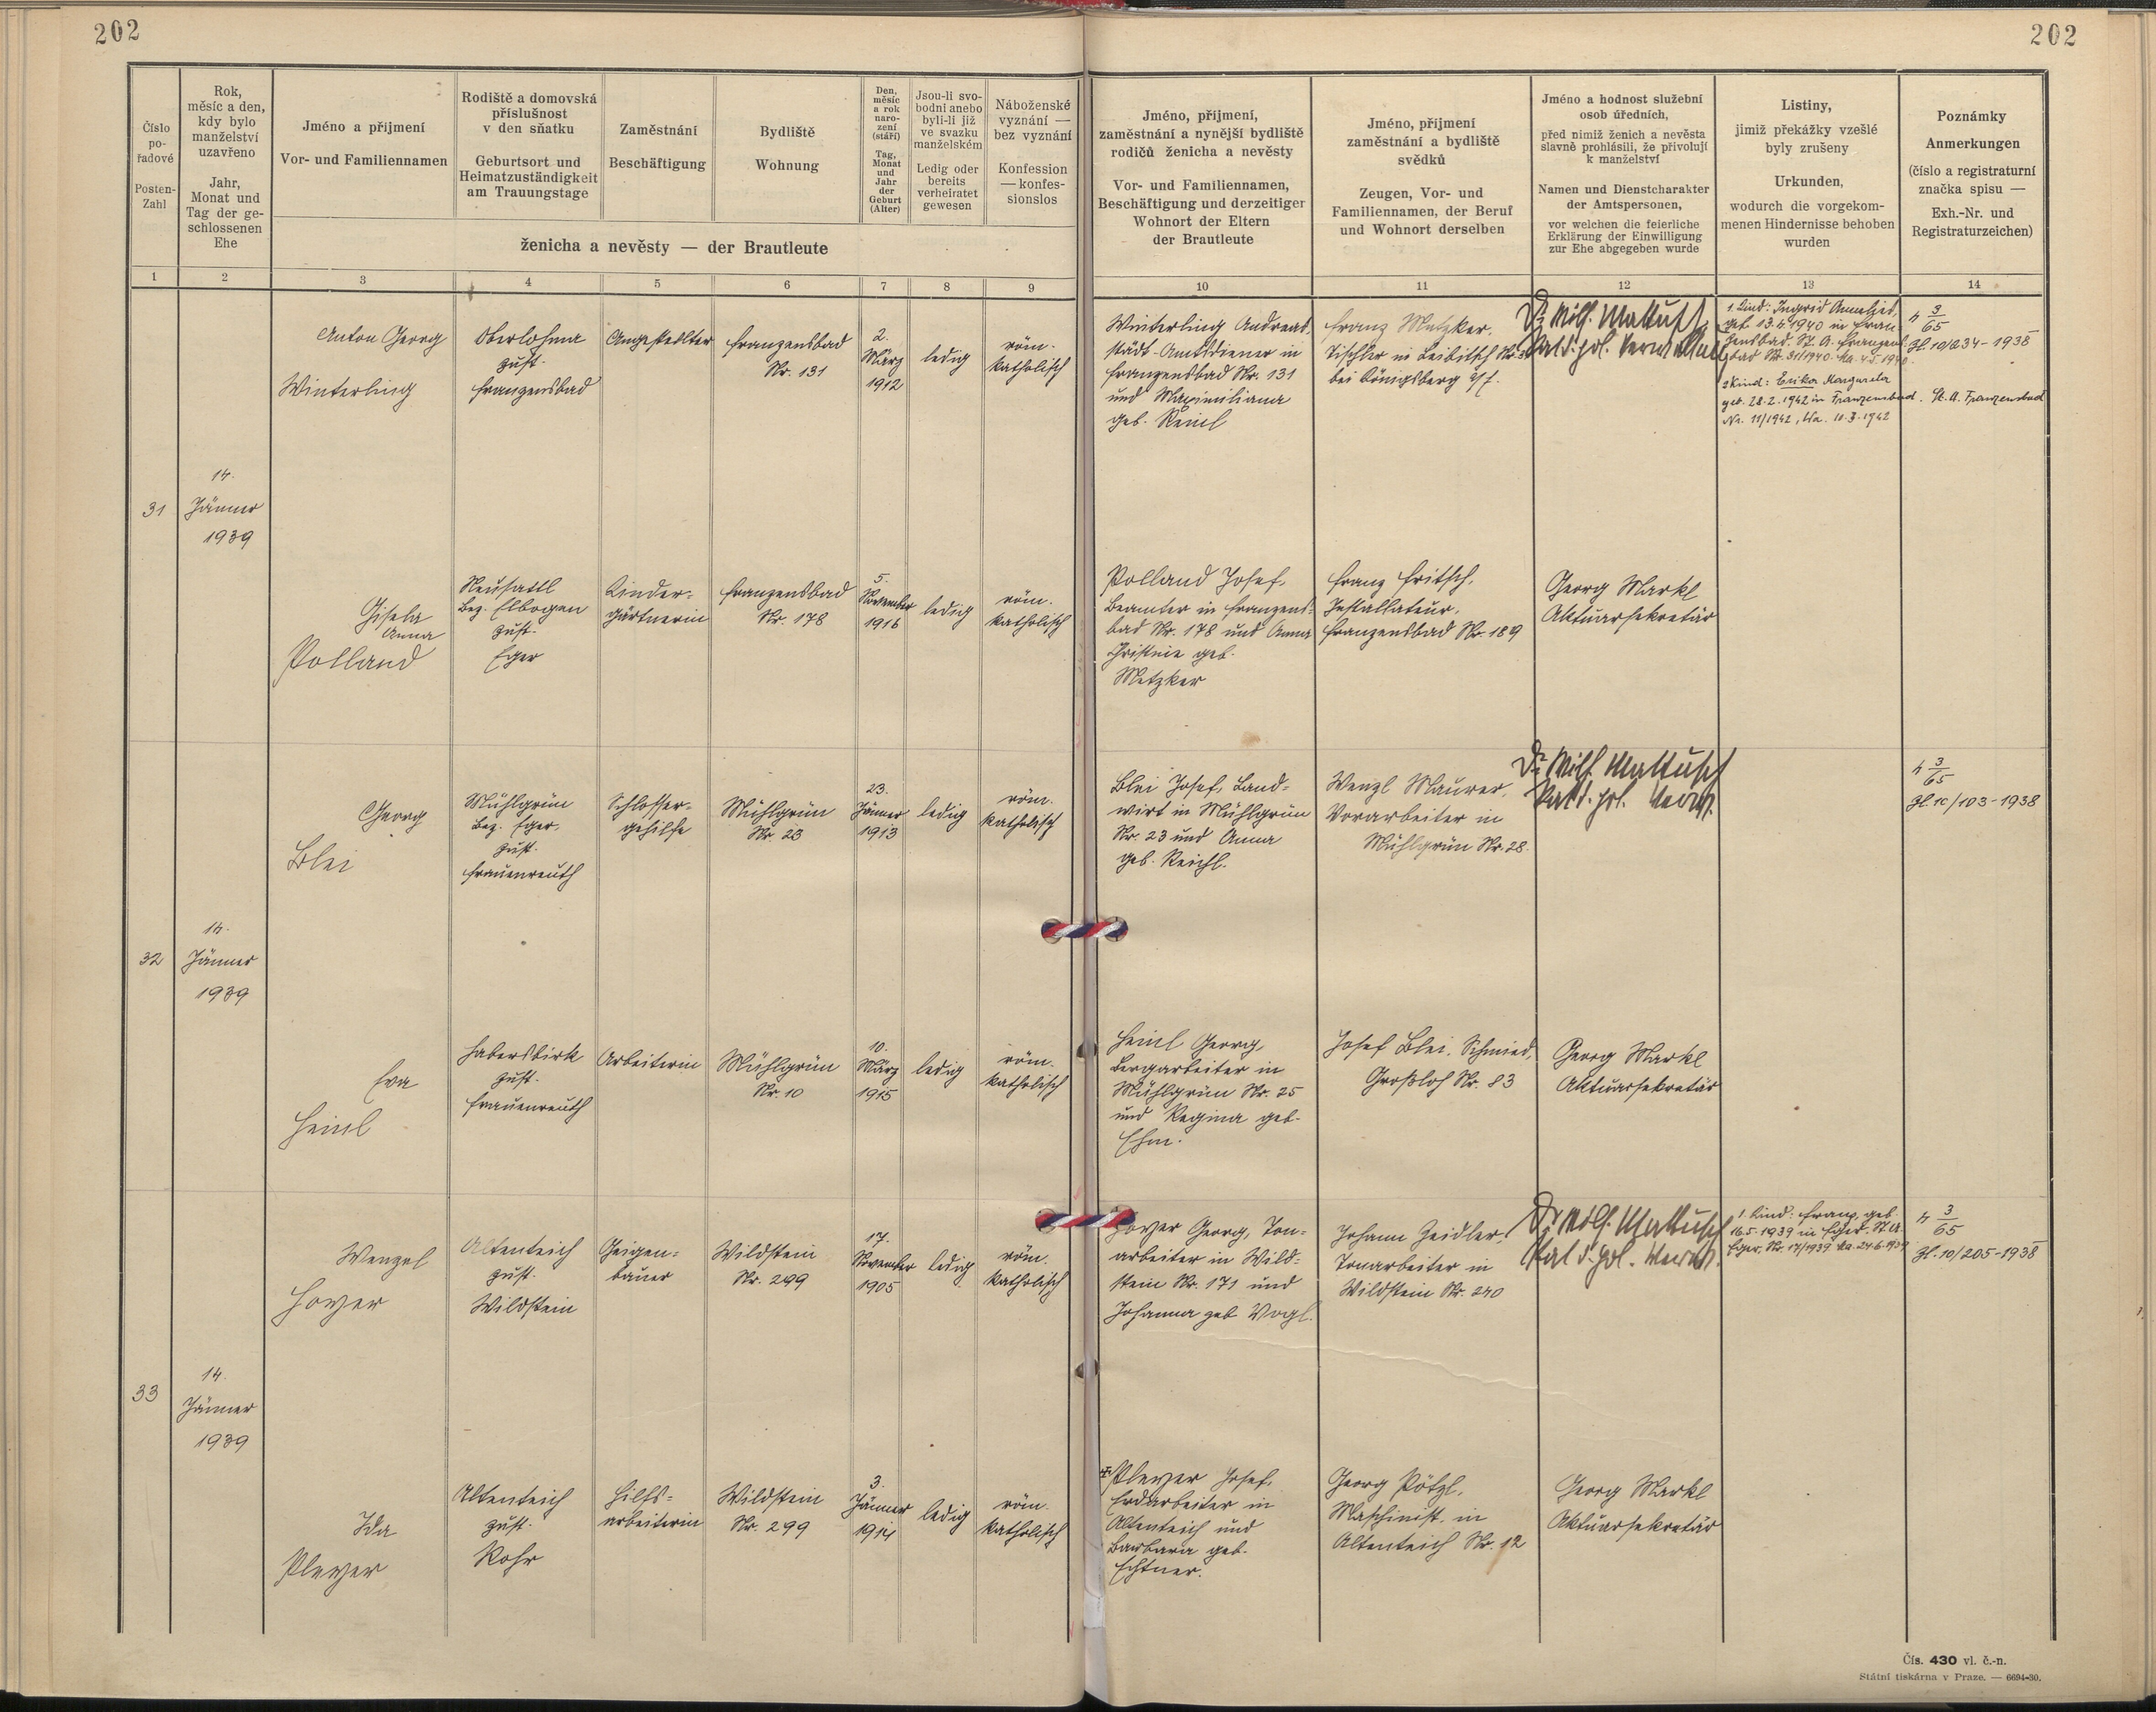 202
202
Číslo
po-
řadové
Posten-
Zahl
Rok,
měsíc a den,
kdy bylo
manželství
uzavřeno
Jahr,
Monat und
Tag der ge-
schlossenen
Ehe
Jméno a přijmení
Vor- und Familiennamen
Rodiště a domovská
příslušnost
v den sňatku
Geburtsort und
Heimatzuständigkeit
am Trauungstage
Zaměstnání
Beschäftigung
Bydliště
Wohnung
Den,
měsíc
a rok
naro-
zení
(stáří)
Tag,
Monat
und
Jahr
der
Geburt
(Alter)
Jsou-li svo-
bodni anebo
byli-li již
ve svazku
manželském
Ledig oder
bereits
verheiratet
gewesen
Náboženské
vyznání —
bez vyznání
Konfession
— konfes-
sionslos
ženicha a nevěsty — der Brautleute
Jméno, příjmení,
zaměstnání a nynější bydliště
rodičů ženicha a nevěsty
Vor- und Familiennamen,
Beschäftigung und derzeitiger
Wohnort der Eltern
der Brautleute
Jméno, přijmení
zaměstnání a bydliště
svědků
Zeugen, Vor- und
Familiennamen, der Beruf
und Wohnort derselben
Jméno a hodnost služební
osob úředních,
před nimiž ženich a nevěsta
slavně prohlásili, že přivolují
k manželství
Namen und Dienstcharakter
der Amtspersonen,
vor welchen die feierliche
Erklärung der Einwilligung
zur Ehe abgegeben wurde
Listiny,
jimiž překážky vzešlé
byly zrušeny
Urkunden,
wodurch die vorgekom-
menen Hindernisse behoben
wurden
Poznámky
Anmerkungen
(číslo a registraturní
značka spisu —
Exh.-Nr. und
Registraturzeichen)
1 2 3 4 5 6 7 8 9 10 11 12 13 14
31
14.
Jänner
1939
Anton Georg
Winterling
Oberlohma
zust.
Franzensbad
Angestellter
Franzensbad
Nr. 131
2.
März
1912
ledig
röm.
katholisch
Winterling Andreas,
städt. Amtsdiener in
Franzensbad Nr. 131
und Maximiliana
geb. Reinl
Franz Metzker,
Tischler in Leibitsch Nr. 
bei Königsberg a/E.
Dr. Wilh. Mattusch
1. Kind: Ingrid
geb. 13.4.1940 in Fran-
zensbad. St. A. Franzens-
bad Nr. 31/1940.
2 Kind: Erika Margareta
geb. 28.2.1942 in Franzensbad. St. A. Franzensbad
Nr. 11/1942, Wa. 11.3.1942
4 3/65
Zl. 10/234-1938
Gisela
Anna
Polland
Neusattl
Bez. Elbogen
zust.
Eger
Kinder-
gärtnerin
Franzensbad
Nr. 178
5.
November
1916
ledig
röm.
katholisch
Polland Josef,
Beamter in Franzens-
bad Nr. 178 und Anna
Christine geb.
Metzker
Franz Fritsch,
Installateur,
Franzensbad Nr. 189
Georg Markl
Aktuarsekretär
32
14.
Jänner
1939
Georg
Blei
Mühlgrün
Bez. Eger,
zust.
Frauenreuth
Schlosser-
gehilfe
Mühlgrün
Nr. 23
23.
Jänner
1913
ledig
röm.
katholisch
Blei Josef, Land-
wirt in Mühlgrün
Nr. 23 und Anna
geb. Reichl.
Wenzl Maurer,
Vorarbeiter in
Mühlgrün Nr. 28.
Dr. Wilh. Mattusch
4 3/65
Zl. 10/103-1938
Eva
Heinl
Habersbirk
zust.
Frauenreuth
Arbeiterin
Mühlgrün
Nr. 10
10.
März
1915
ledig
röm.
katholisch
Heinl Georg,
Bergarbeiter in
Mühlgrün Nr. 25
und Regina geb.
Ehm.
Josef Blei, Schmied,
Großloh Nr. 83
Georg Markl
Aktuarsekretär
33
14.
Jänner
1939
Wenzel
Hoyer
Altenteich
zust.
Wildstein
Geigen-
bauer
Wildstein
Nr. 299
17.
November
1905
ledig
röm.
katholisch
Hoyer Georg, Ton-
arbeiter in Wild-
stein Nr. 171 und
Johanna geb. Vogl.
Johann Zeidler,
Tonarbeiter in
Wildstein Nr. 240
Dr. Wilh. Mattusch
1. Kind: Franz, geb.
16.5.1939 in Eger. St. A.
Eger, Nr. 17/1939 Wa. 24.6.1939
4 3/65
Zl. 10/205-1938
Ida
Pleyer
Altenteich
zust.
Rohr
Hilfs-
arbeiterin
Wildstein
Nr. 299
3.
Jänner
1914
ledig
röm.
katholisch
Pleyer Josef,
Erdarbeiter in
Altenteich und
Barbara geb.
Echtner.
Georg Pötzl,
Maschinist in
Altenteich Nr. 12
Georg Markl
Aktuarsekretär
Čís. 430 vl. č.-n.
Státní tiskárna v Praze. — 6694-30.